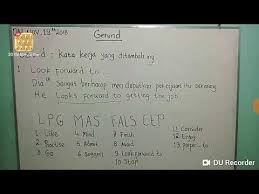 Nov, 13th 2018
Gerund
: Kata kerja yang ditambah ing
1. Look forward to
Dia sangat berharap mendapatkan pekerjaan itu
He Looks forward to getting the job.
LPG MAS FALS CEP
1 Like 4 Mind 7 Finish 11 Consider
2 Practise 5 Admit 8 Avoid 12 Enjoy
3 Go 6 Suggest 9 Look forward to
10 Stop
DU Recorder